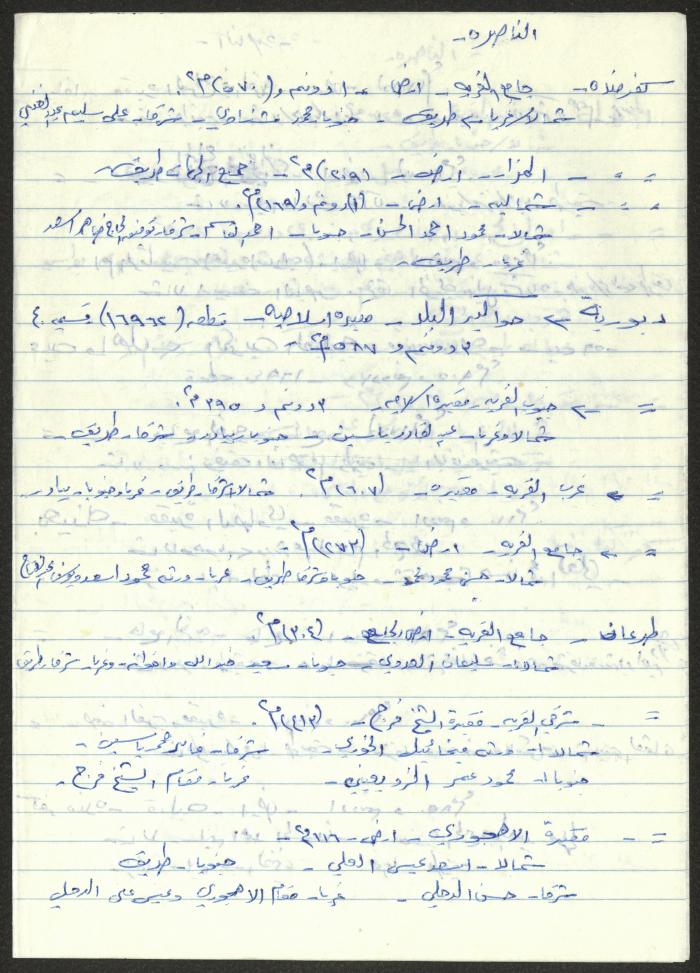 الناصرة -
كفر مندا - جامع القرية - ارض - ١ دونم و (٥٧٠) م٢.
شمالاً وغرباً - طريق - جنوباً محمد - شرقاً - علي سليم عبد الغني
= = - المزار - ارض - (٢٠٩١) م٢ - جميع الجهات طريق
= = - شمالية - ارض - (١) دونم و (١٦٩) م٢.
شمالاً - محمود احمد الحسن - جنوباً - احمد القاسم - شرقاً - توفيق الحاج اسعد
غرباً - طريق -
دبورية - حوالي البلد - مقبرة اسلامية - قطعة (١٦٩٦٢) قسيمة ٤٠
٣ دونم و ٥٨٧ م٢ -
= - جنوب القرية - مقبرة اسلامية - ٣ دونم و ٣٩٥ م٢.
شمالاً وغرباً - عبد القادر ياسين - جنوباً بيادر و شرقاً طريق -
= - غرب القرية - مقبرة - (٦٠٧) م٢. شمالاً وشرقاً طريق - غرباً وجنوباً - بيادر
= - جامع القرية - ارض - (٢٧٣) م٢ -
شمالاً - حسن محمود - جنوباً وشرقاً طريق - غرباً - ورثة محمود اسعد ويوسف
طرعان - جامع القرية - ارض الجامع - (٣٠٤) م٢
شمالاً - سليمان العدوي - جنوباً - سعيد خير الله واخوانه - وغرباً وشرقاً طريق
= - شرقي القرية - مقبرة الشيخ فرج - (٤١٣) م٢.
شمالاً - ورثة ميخائيل الخوري - شرقاً - ياسين -
جنوباً - محمود عمر - غرباً - مقام الشيخ فرج -
= - مقبرة - ارض - ٨١٦ م٢ -
شمالاً - اسعد عيسى العلي - جنوباً - طريق
شرقاً - حسن - غرباً - مقام وعيسى علي